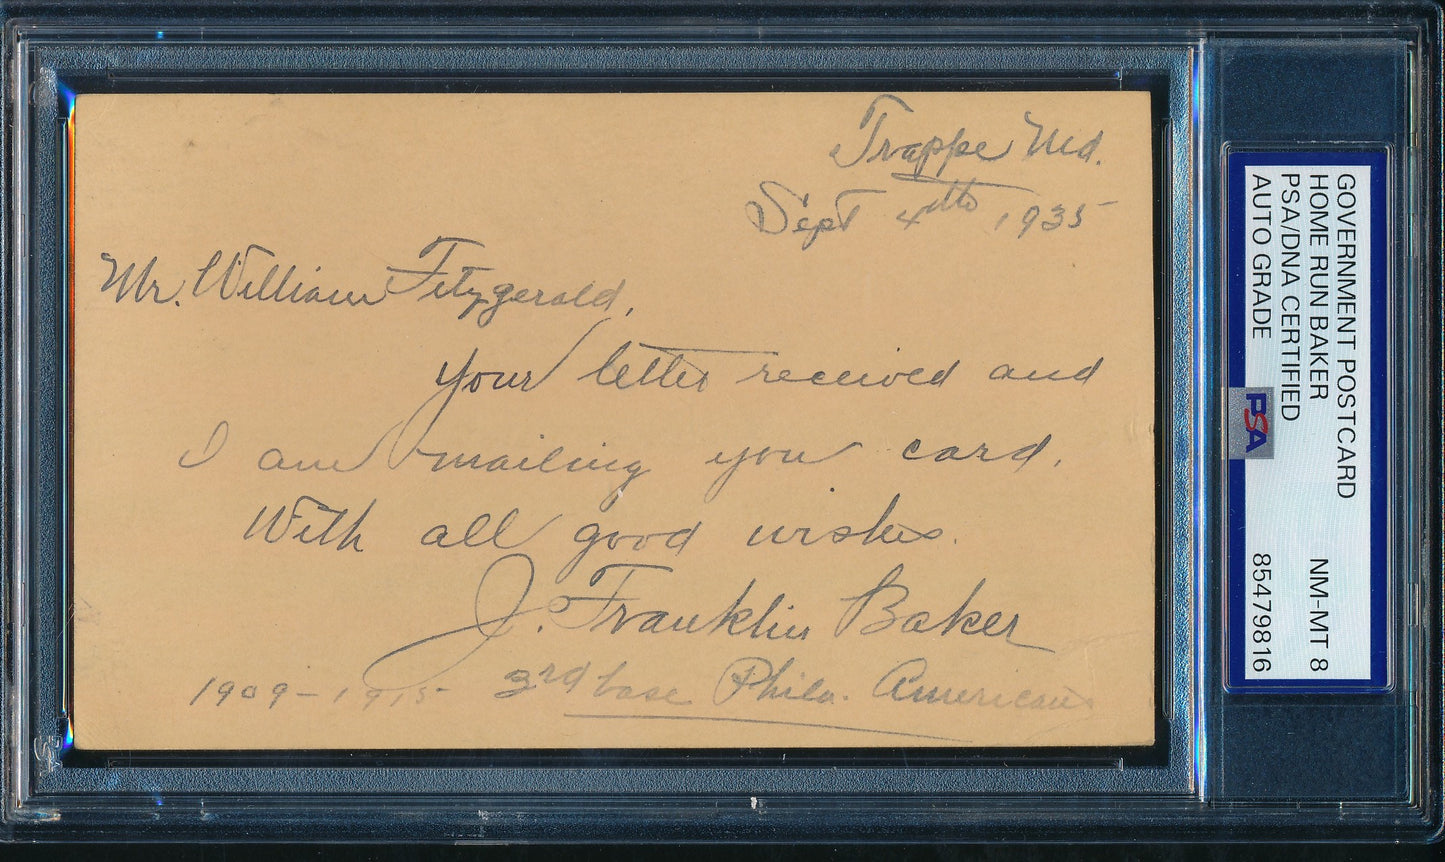 Trappe Md.
Sept 4th, 1935
Mr. William Fitzgerald,
Your letter received and
I am mailing you card.
With all good wishes.
J. Franklin Baker
1909-1915 3rd base Phila. Americans
GOVERNMENT POSTCARD
HOME RUN BAKER NM-MT 8
PSA/DNA CERTIFIED
AUTO GRADE 85479816
PSA